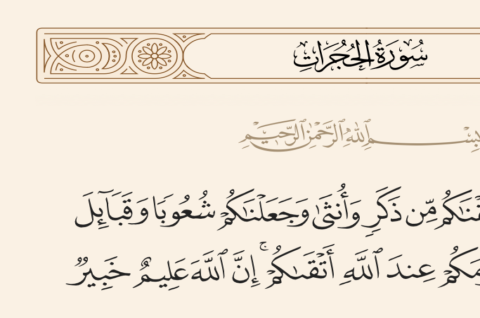 سُورَةُ الحُجُرَاتِ
بِسْمِ ٱللَّهِ ٱلرَّحْمَٰنِ ٱلرَّحِيمِ
مِّن ذَكَرٍ وَأُنثَىٰ وَجَعَلْنَٰكُمْ شُعُوبًا وَقَبَآئِلَ
عِندَ ٱللَّهِ أَتْقَىٰكُمْ ۚ إِنَّ ٱللَّهَ عَلِيمٌ خَبِيرٌ